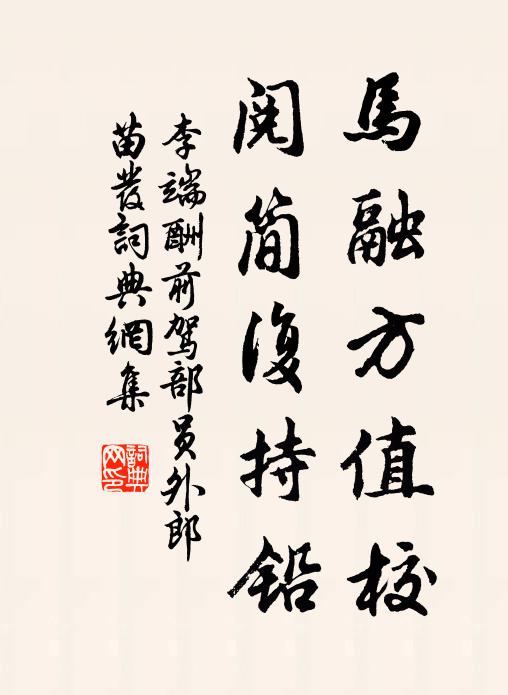 馬融方值校
閱简復持鉛
李端酬前駕部员外郎
苗發詞典網集
詞典网印